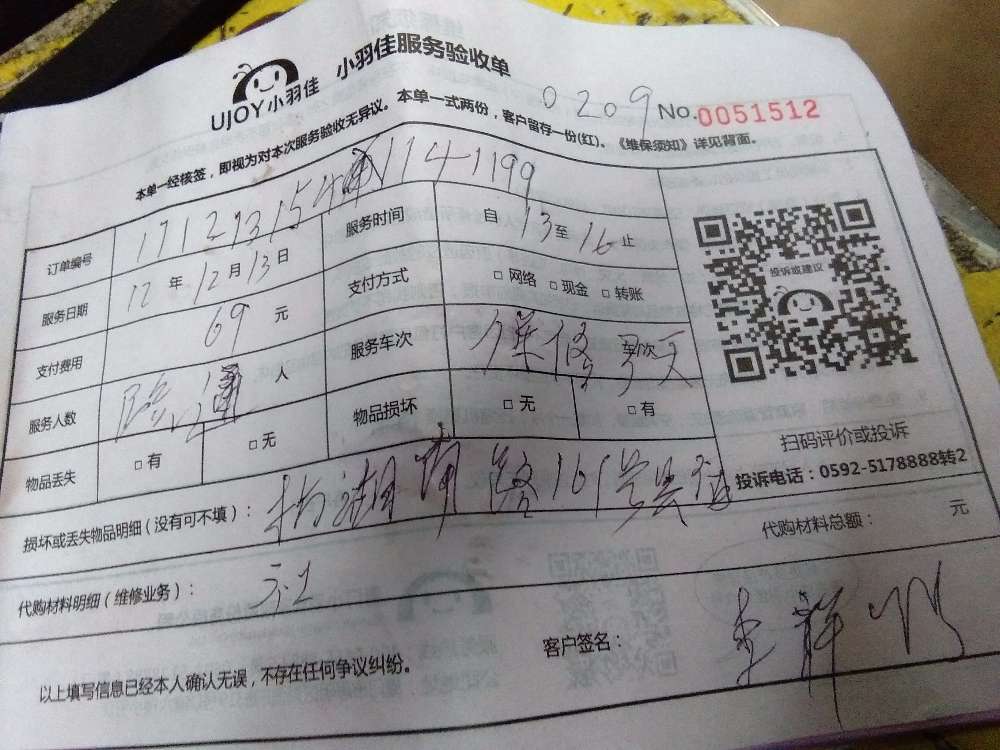 UJOY小羽佳 小羽佳服务验收单
0209 No.0051512
本单一经核签，即视为对本次服务验收无异议。本单一式两份，客户留存一份(红)。《维保须知》详见背面。
订单编号 服务时间 自 13 至 16 止
服务日期 17 年 12 月 13 日 支付方式 □ 网络 □ 现金 □ 转账
支付费用 69 元 服务车次
服务人数 路通 人 物品损坏 □ 无 □ 有
物品丢失 □ 有 □ 无
投诉或建议
扫码评价或投诉
投诉电话：0592-5178888转2
损坏或丢失物品明细（没有可不填）： 湖南路161号
代购材料明细（维修业务）： 代购材料总额： 元
以上填写信息已经本人确认无误，不存在任何争议纠纷。 客户签名：